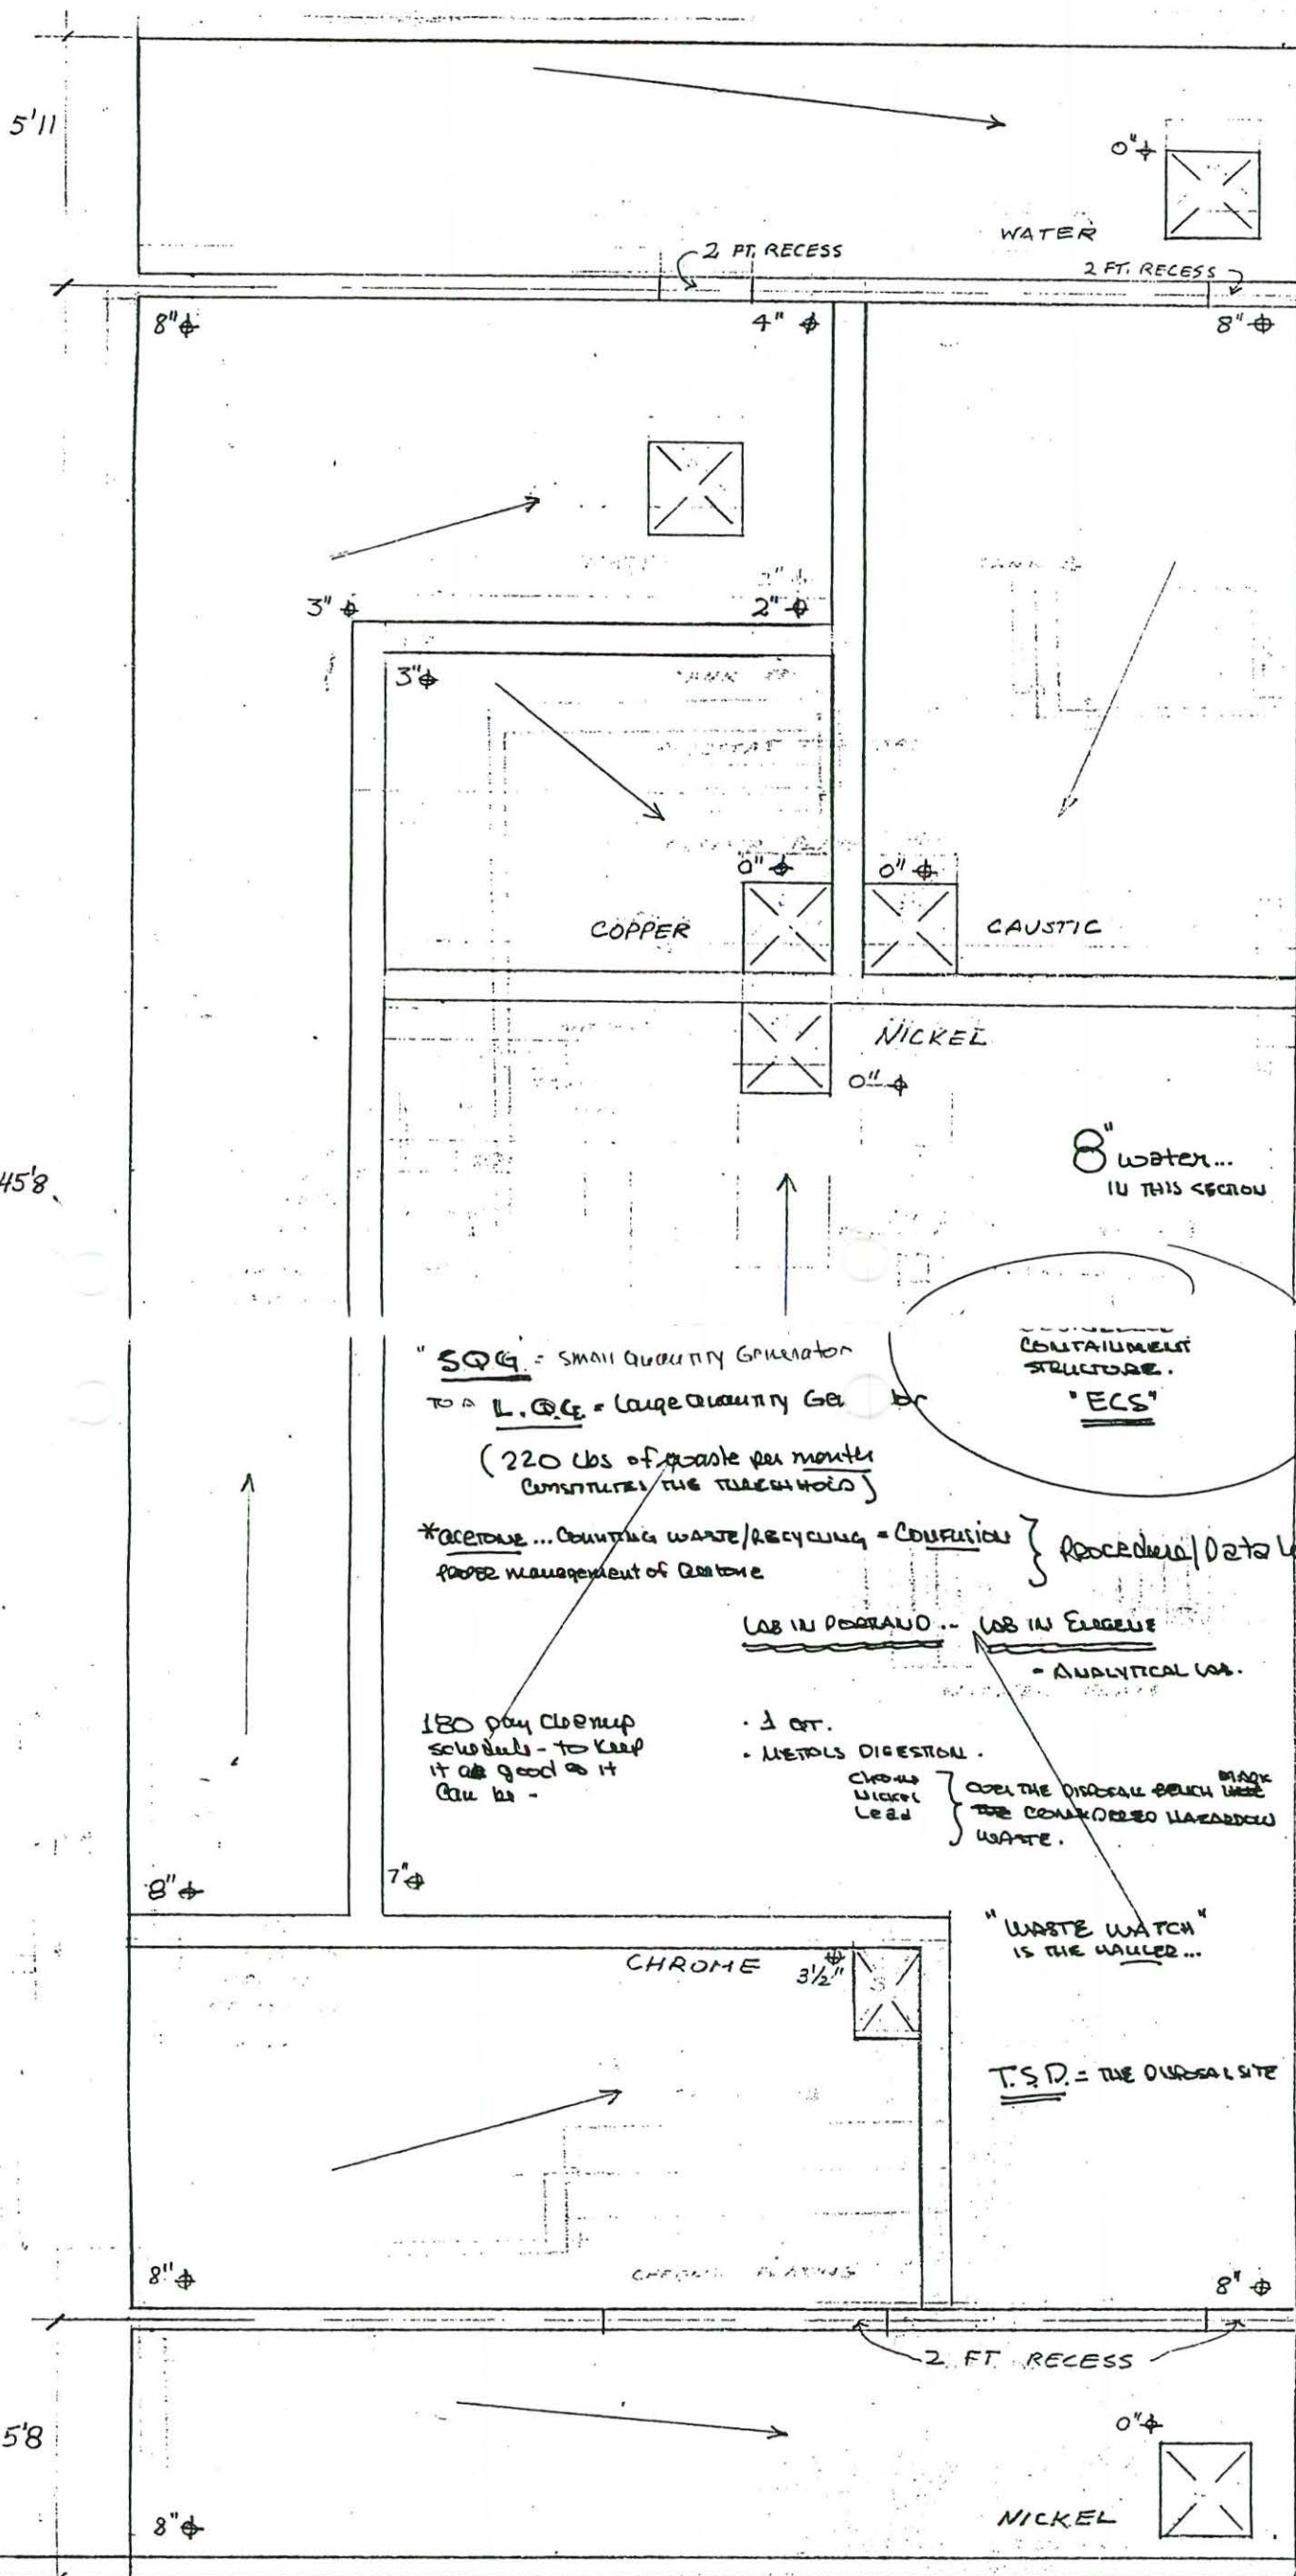 5'11
0"
WATER
2 FT. RECESS
2 FT. RECESS
8"
4"
8"
3"
2"
3"
TANK
0"
0"
COPPER
CAUSTIC
NICKEL
0"
8" water...
IN THIS SECTION
45'8
CONTAINMENT
STRUCTURE.
"ECS"
"SQG" = Small Quantity Generator
TO A L.Q.G. = Large Quantity Ge
(220 lbs of waste per month
CONSTITUTES THE THRESHHOLD)
*ACETONE... COUNTING WASTE/RECYCLING = CONFUSION } Procedural/Data
PROPER management of acetone
LAB IN PORTLAND... LAB IN EUGENE
- ANALYTICAL LAB.
180 Day cleanup
schedule - to keep
it as good as it
can be -
• 1 QT.
• METALS DIGESTION.
Chrome
Nickel
Lead
OVER THE DISPOSAL BENCH MARK
CONSIDERED HAZARDOUS
WASTE.
8"
7"
"WASTE WATCH"
IS THE HAULER...
CHROME
3½"
T.S.D. = THE DISPOSAL SITE
CHROME PLATING
8"
8"
2 FT RECESS
5'8
0"
8"
NICKEL